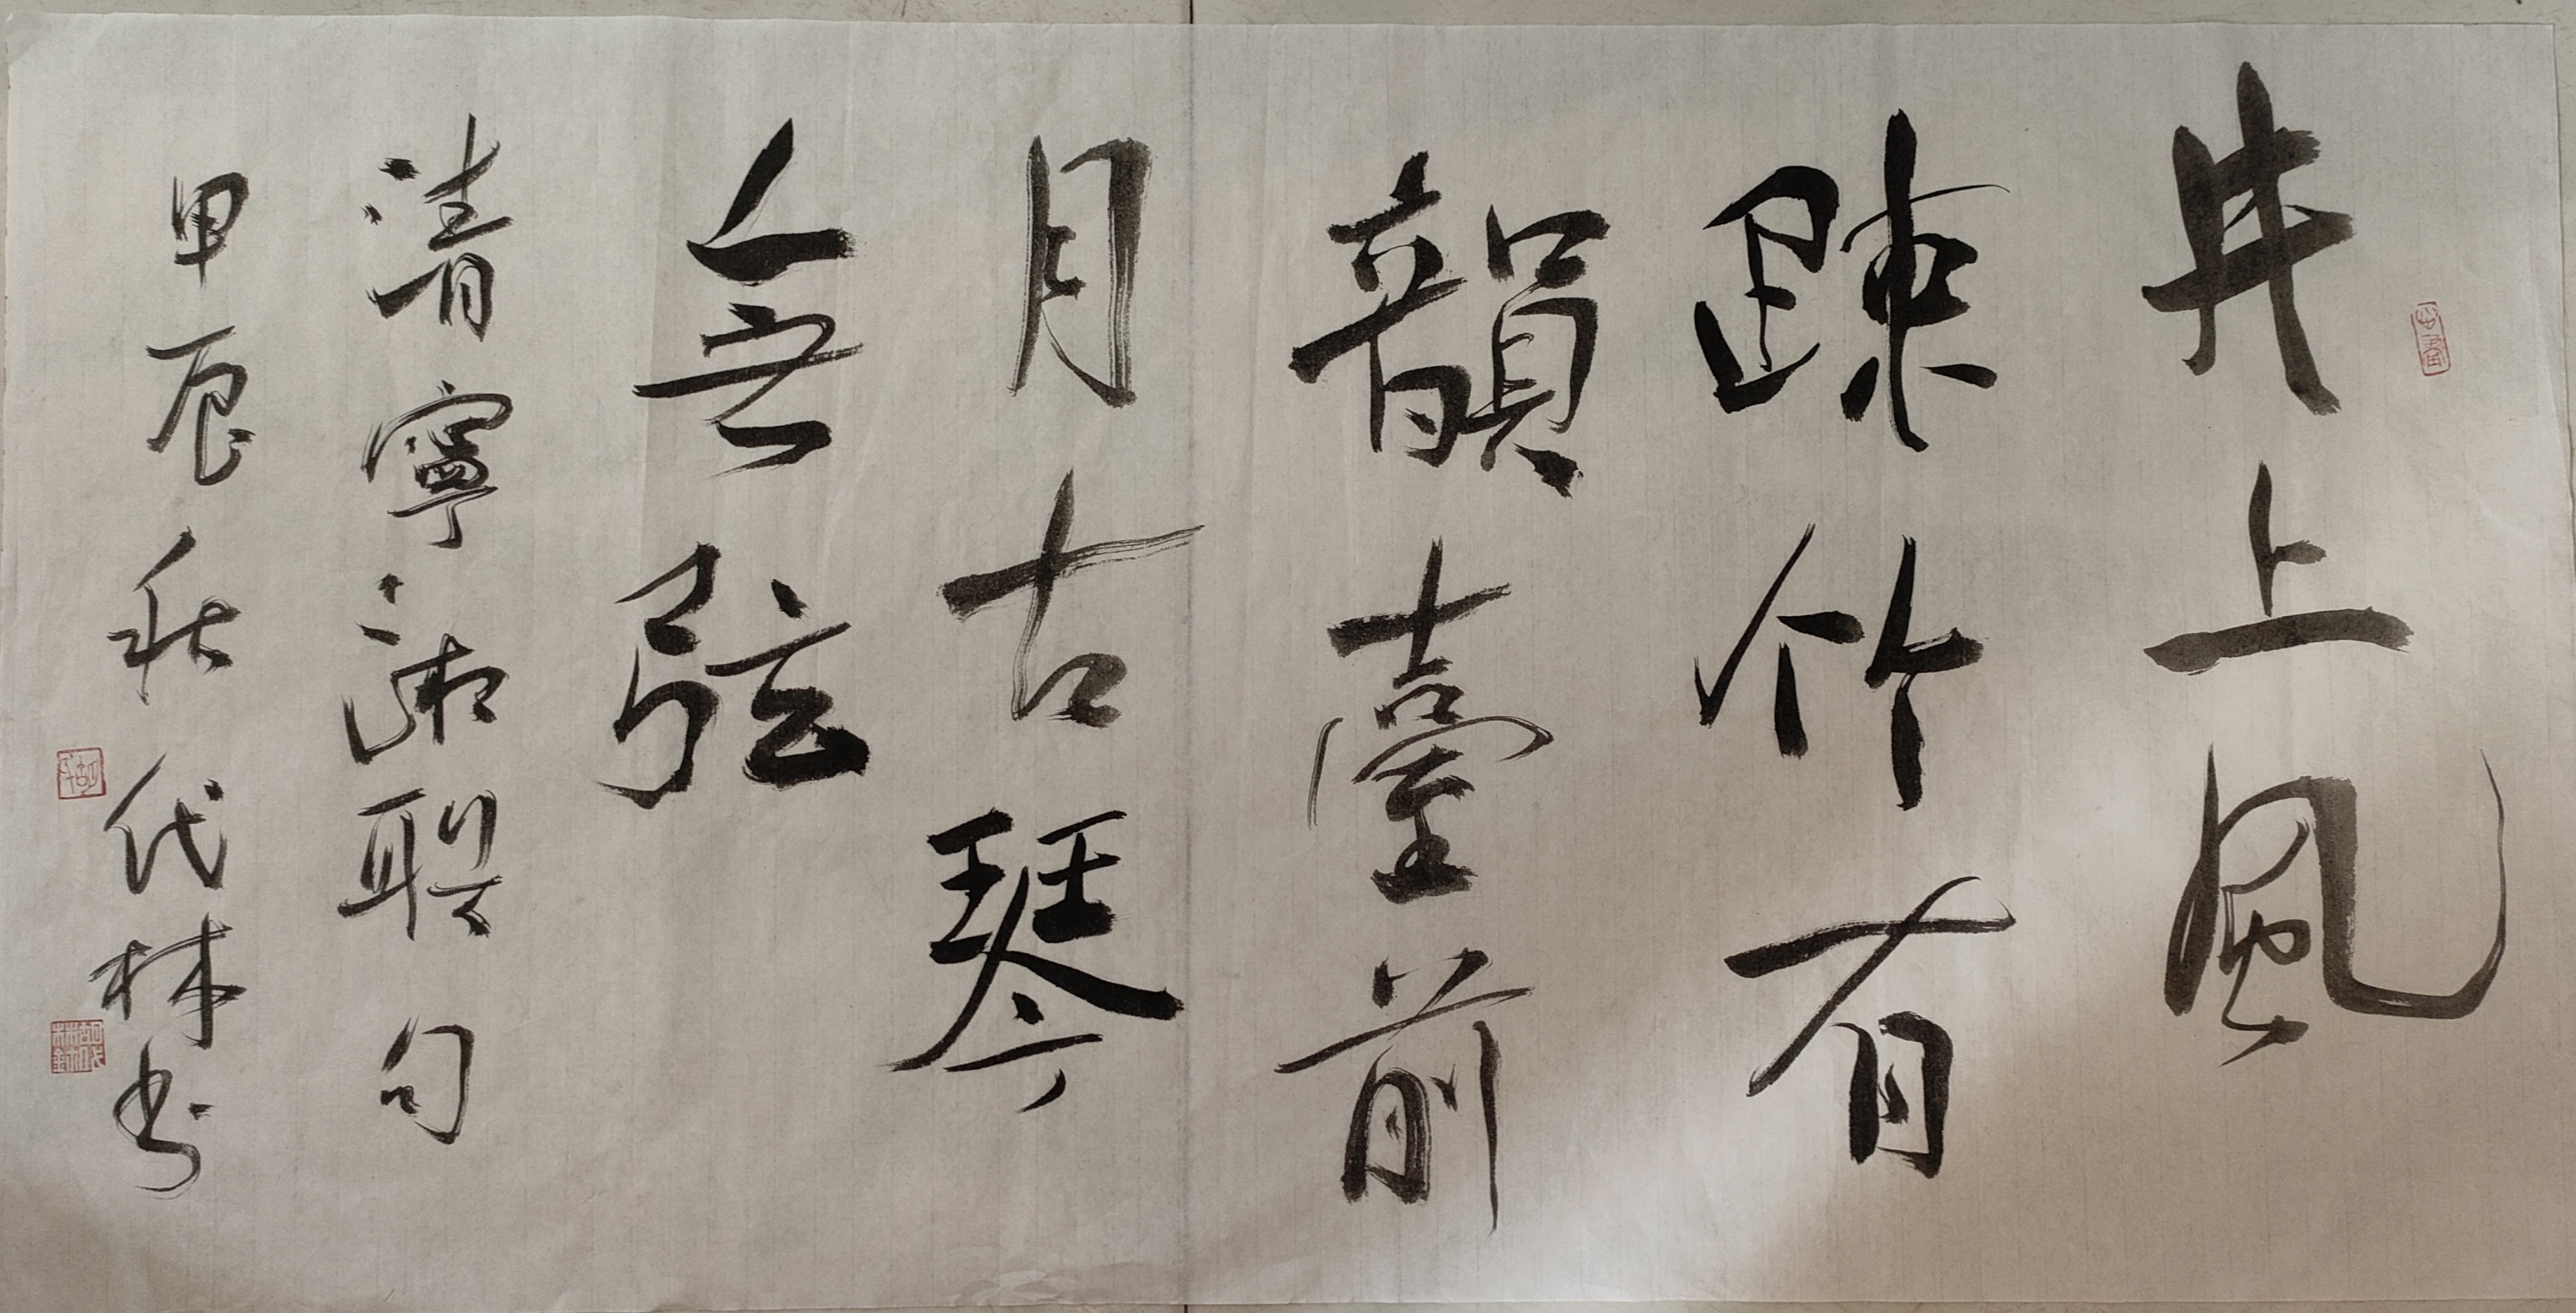 井上風
疎竹有
韻臺前
月古琴
無弦
清寧湘聯句
甲辰秋代林書